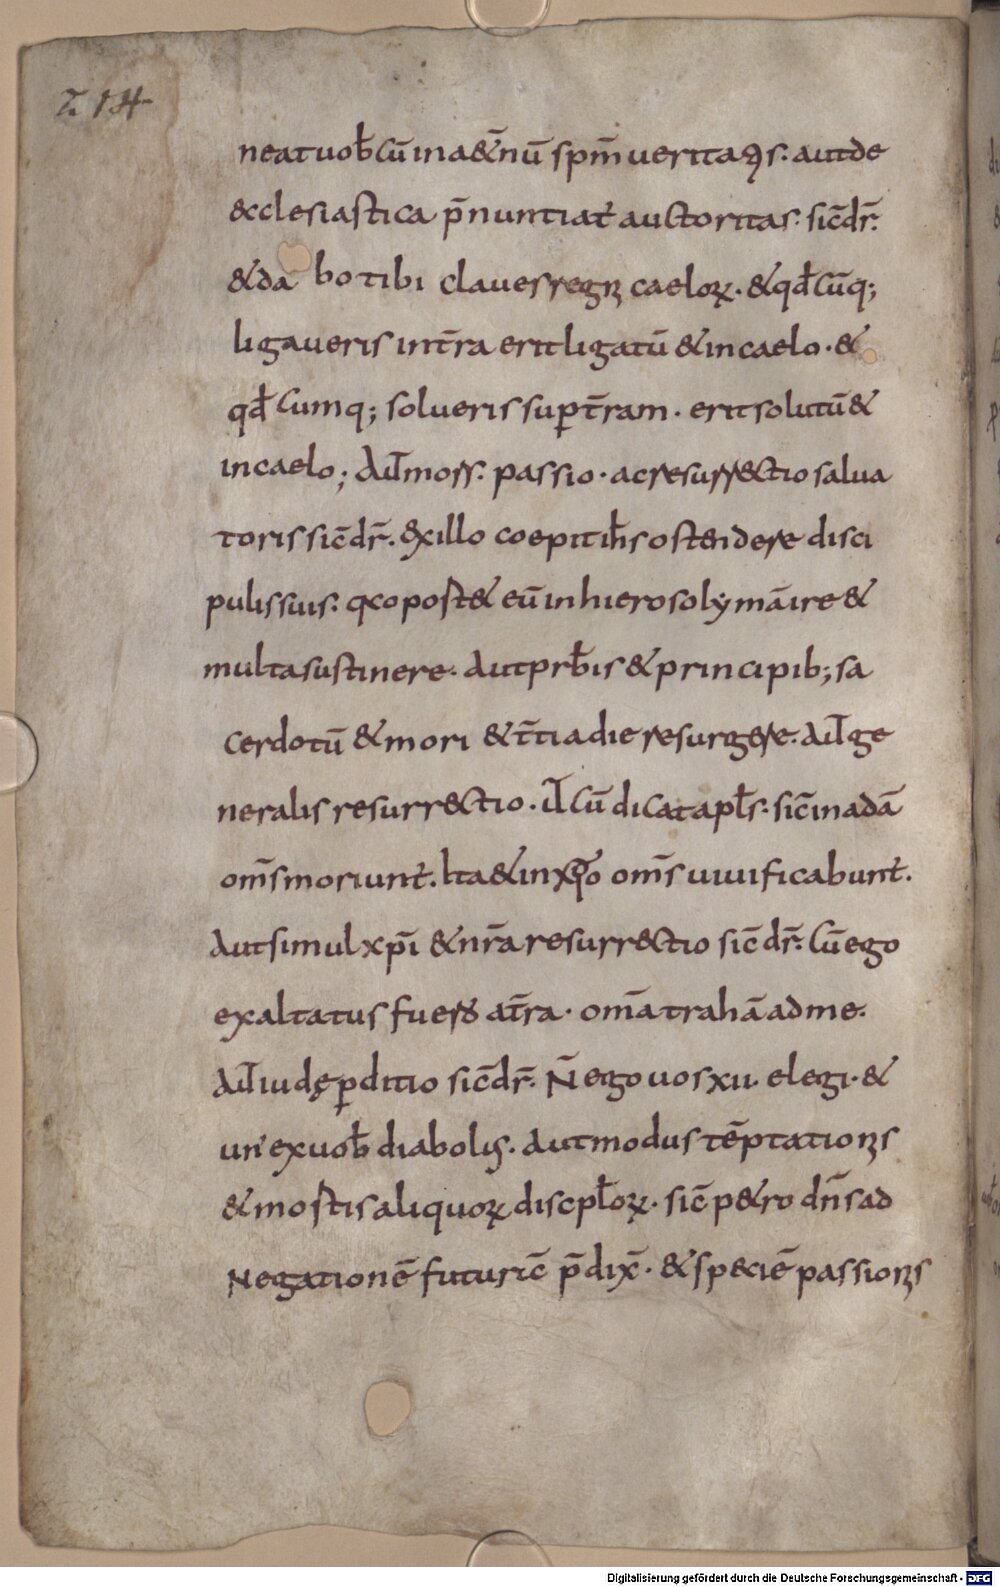 214
neat uob̄ cū in a&̄nū sp̄m ueritatis. aut de
&cclesiastica p̄nuntiat̄ auctoritas. sic̄ dr̄.
& dabo tibi claues regni caeloꝝ. & qd̄ cūq;
ligaueris int̄ra erit ligatū & in caelo. &
qd̄ cumq; solueris sup t̄ram. erit solutū &
in caelo; Aut̄ mors. passio. ac resurr&ctio salua
toris sic̄ dr̄. &x illo coepit ih̄s ostendere disci
pulis suis. qo oport& eū in hierosolymā ire &
multa sustinere. Aut prb̄is & principib; sa
cerdotū & mori & t̄tia die resurgere. Aut̄ ge
neralis resurr&ctio. ut̄ cū dicat apl̄s. sic̄ in adā
om̄s moriunt̄. Ita & in xp̄o om̄s uiuificabunt̄.
Aut simul xp̄i & nr̄a resurr&ctio sic̄ dr̄. cū ego
exaltatus fuero a t̄ra. om̄a trahā ad me.
Aut̄ iudę ꝑditio sic̄ dr̄. N̄ ego uos xii. elegi. &
un' ex uob̄ diabolus. Aut modus tēptationis
& mostis aliquoꝝ discpl̄oꝝ. sic̄ p&ro dn̄s ad
Negationē futurā p̄dix̄. & speciē passionis
Digitalisierung gefördert durch die Deutsche Forschungsgemeinschaft - DFG